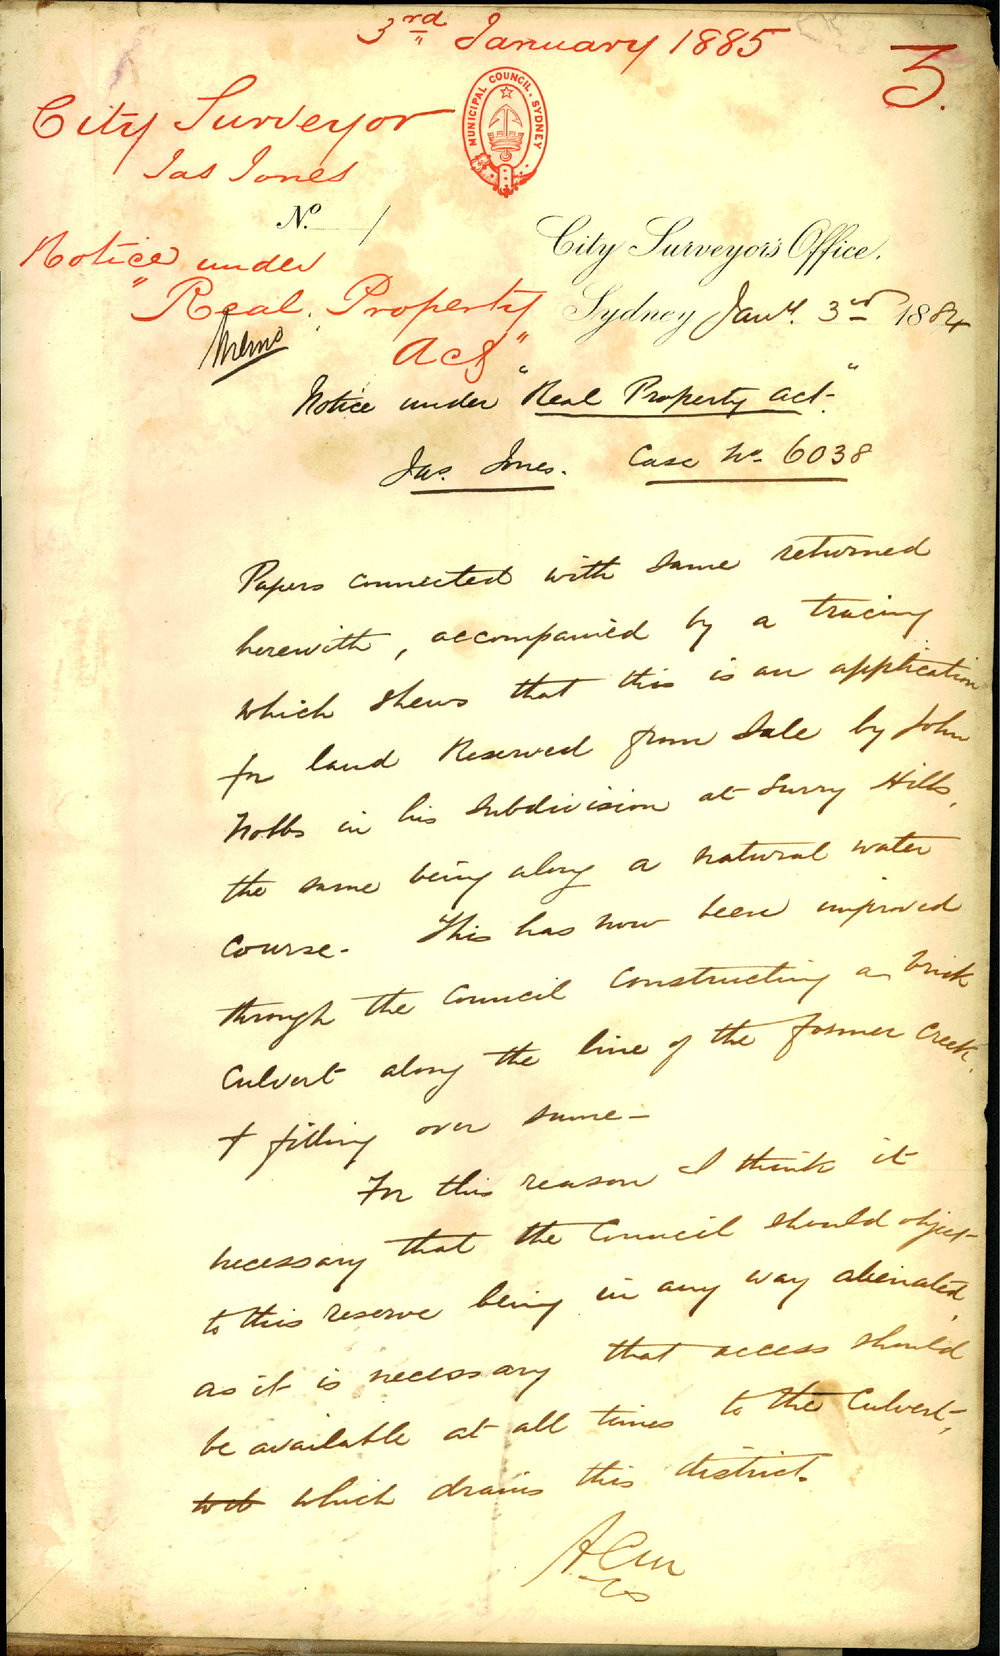 3rd January 1885
3.
City Surveyor
Jas Jones
MUNICIPAL COUNCIL. SYDNEY
No. 1
City Surveyor's Office.
Notice under
"Real Property
Act"
Sydney Jany. 3rd 1884
Memo
Notice under "Real Property Act."
Jas. Jones. Case No. 6038
Papers connected with same returned
herewith, accompanied by a tracing
which shews that this is an application
for land Reserved from Sale by John
Nobbs in his Subdivision at Surry Hills,
the same being along a natural water
course - This has now been improved
through the Council Constructing a brick
Culvert along the line of the former Creek,
& filling over same -
For this reason I think it
necessary that the Council should object
to this reserve being in any way alienated,
as it is necessary that access should
be available at all times to the Culvert,
which drains this district.
CS